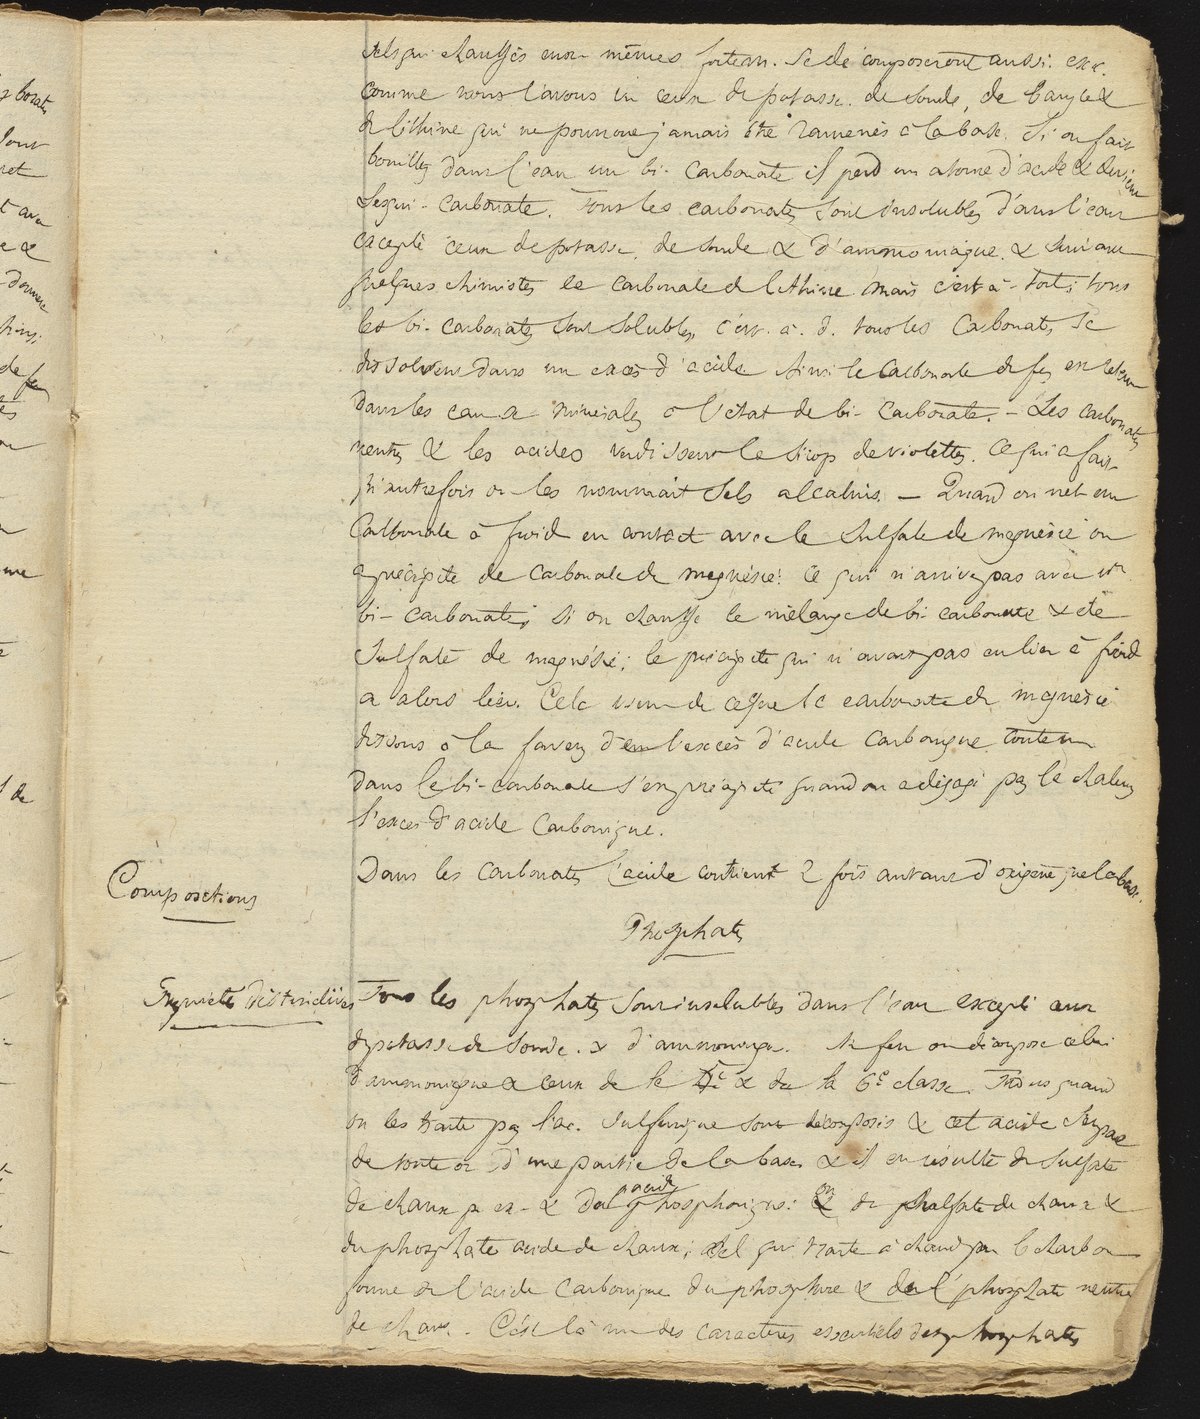 chauffés eux-mêmes fortem. se décomposeront aussi. exc.
comme nous l'avons vu ceux de potasse. de soude, de baryte &
de lithine qui ne pourront jamais être ramenés à la base. Si on fait
bouillir dans l'eau un bi-carbonate il perd un atome d'acide & devient
sesqui-carbonate. Tous les carbonates sont insolubles dans l'eau
excepté ceux de potasse, de soude & d'ammoniaque. & suivant
quelques chimistes le carbonate de lithine mais c'est à-tort; tous
les bi-carbonates sont solubles, c'est. à. d. tous les carbonates se
dissolvent dans un excès d'acide Ainsi le carbonate de fer
dans les eaux minérales à l'état de bi-carbonate. - Les carbonates
neutres & les acides verdissent le sirop de violettes. Ce qui a fait
qu'autrefois on les nommait sels alcalins. — Quand on met un
Carbonate à froid en contact avec le sulfate de magnésie on
a précipité de carbonate de magnésie: ce qui n'arrive pas avec un
bi-carbonate; si on chauffe le mélange de bi-carbonate & de
sulfate de magnésie; le précipité qui n'avait pas eu lieu à froid
a alors lieu. Cela vient de ce que le carbonate de magnésie
dissous à la faveur de l'excès d'acide carbonique contenu
dans le bi-carbonate s'en précipite quand on a dégagé par la chaleur
l'excès d'acide carbonique.
Compositions
Dans les carbonates l'acide contient 2 fois autant d'oxigène que la base.
Phosphates
Propriétés distinctives
Tous les phosphates sont insolubles dans l'eau excepté ceux
de potasse de soude. & d'ammoniaque. Au feu on décompose celui
d'ammoniaque & ceux de la & de la 6e classe. Tous quand
on les traite par l'ac. sulfurique sont décomposés & cet acide s'empare
de toute ou d'une partie de la base & il en résulte du sulfate
de chaux p. ex- & de l'acide phosphorique: ou du sulfate de chaux &
du phosphate acide de chaux; sel qui traité à chaud par le charbon
donne de l'acide carbonique du phosphore & du phosphate neutre
de chaux. C'est là un des caractères essentiels des phosphates